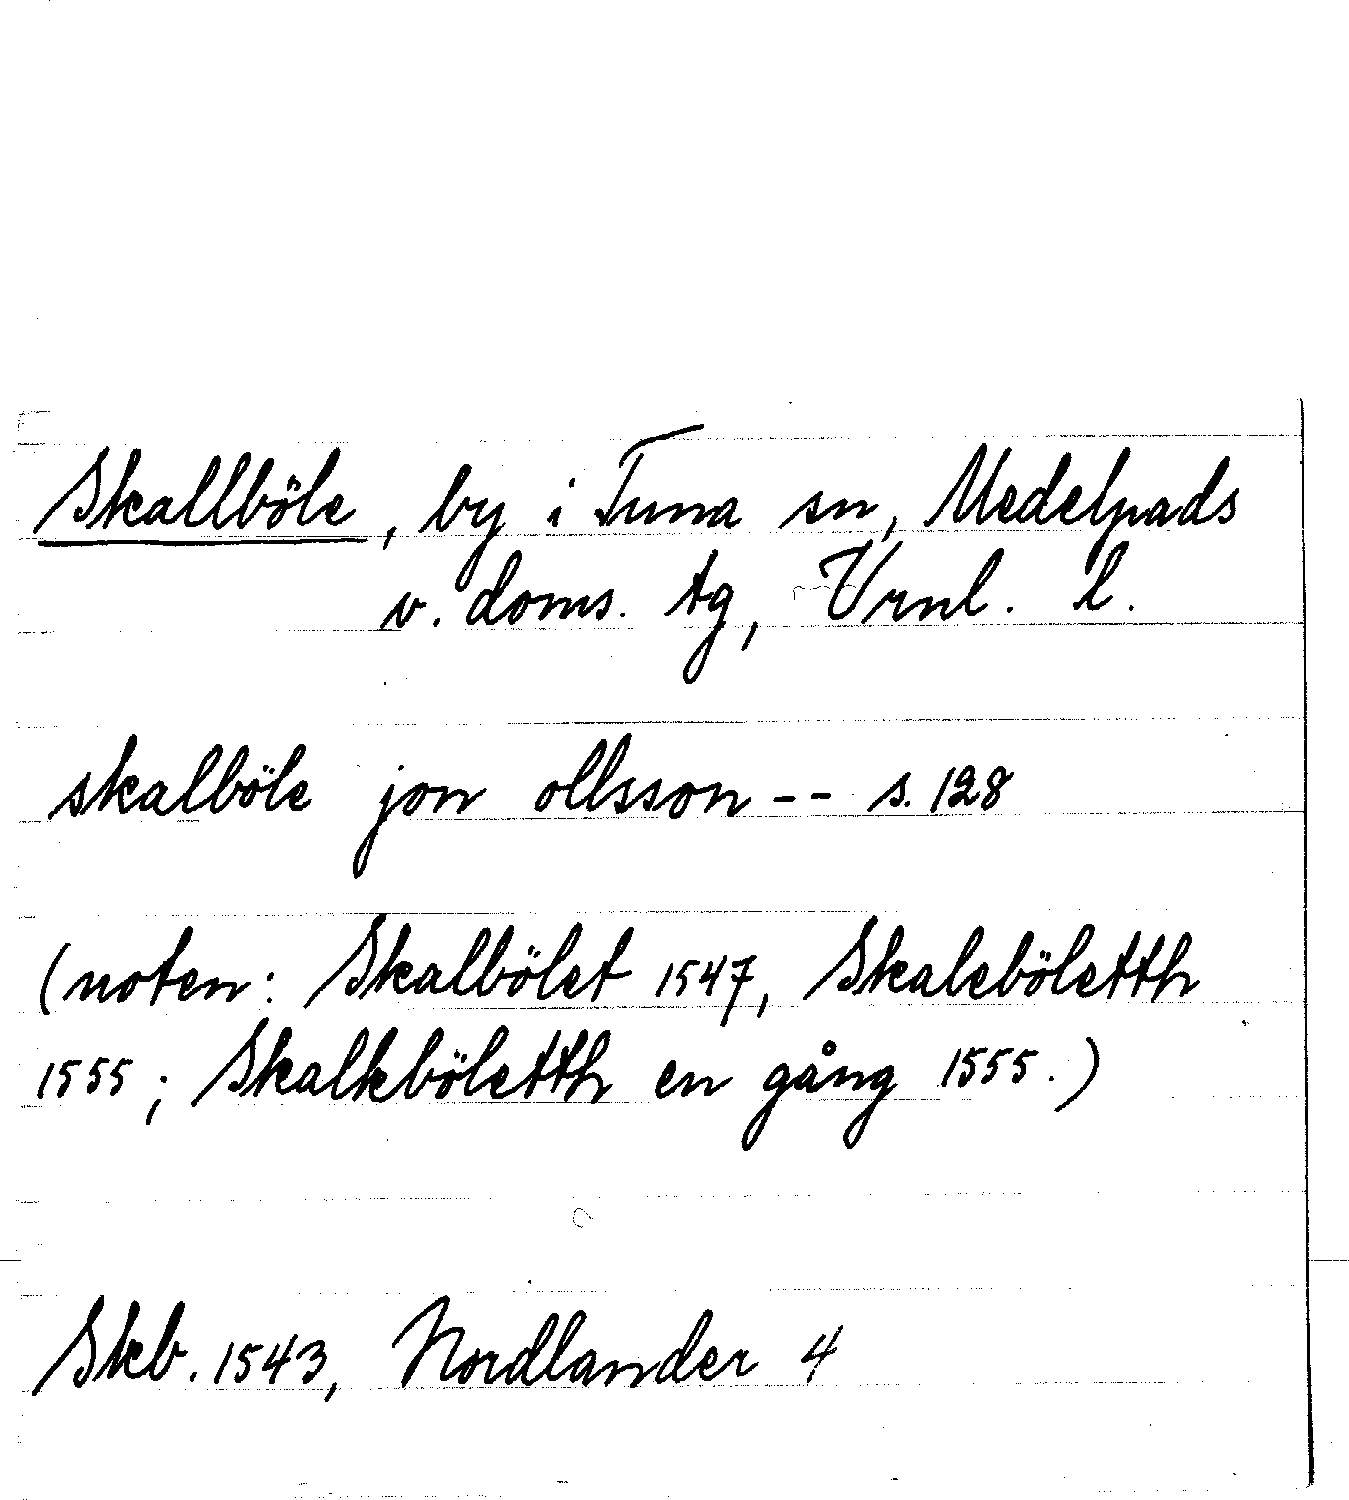 Skallböle, by i Tuna sn, Medelpads
v. doms. tg, Vrnl. l.
skalböle jon ollsson -- s. 128
(noten: Skalbölet 1547, Skaleböletth
1555; Skalkböletth en gång 1555.)
Skb. 1543, Nordlander 4